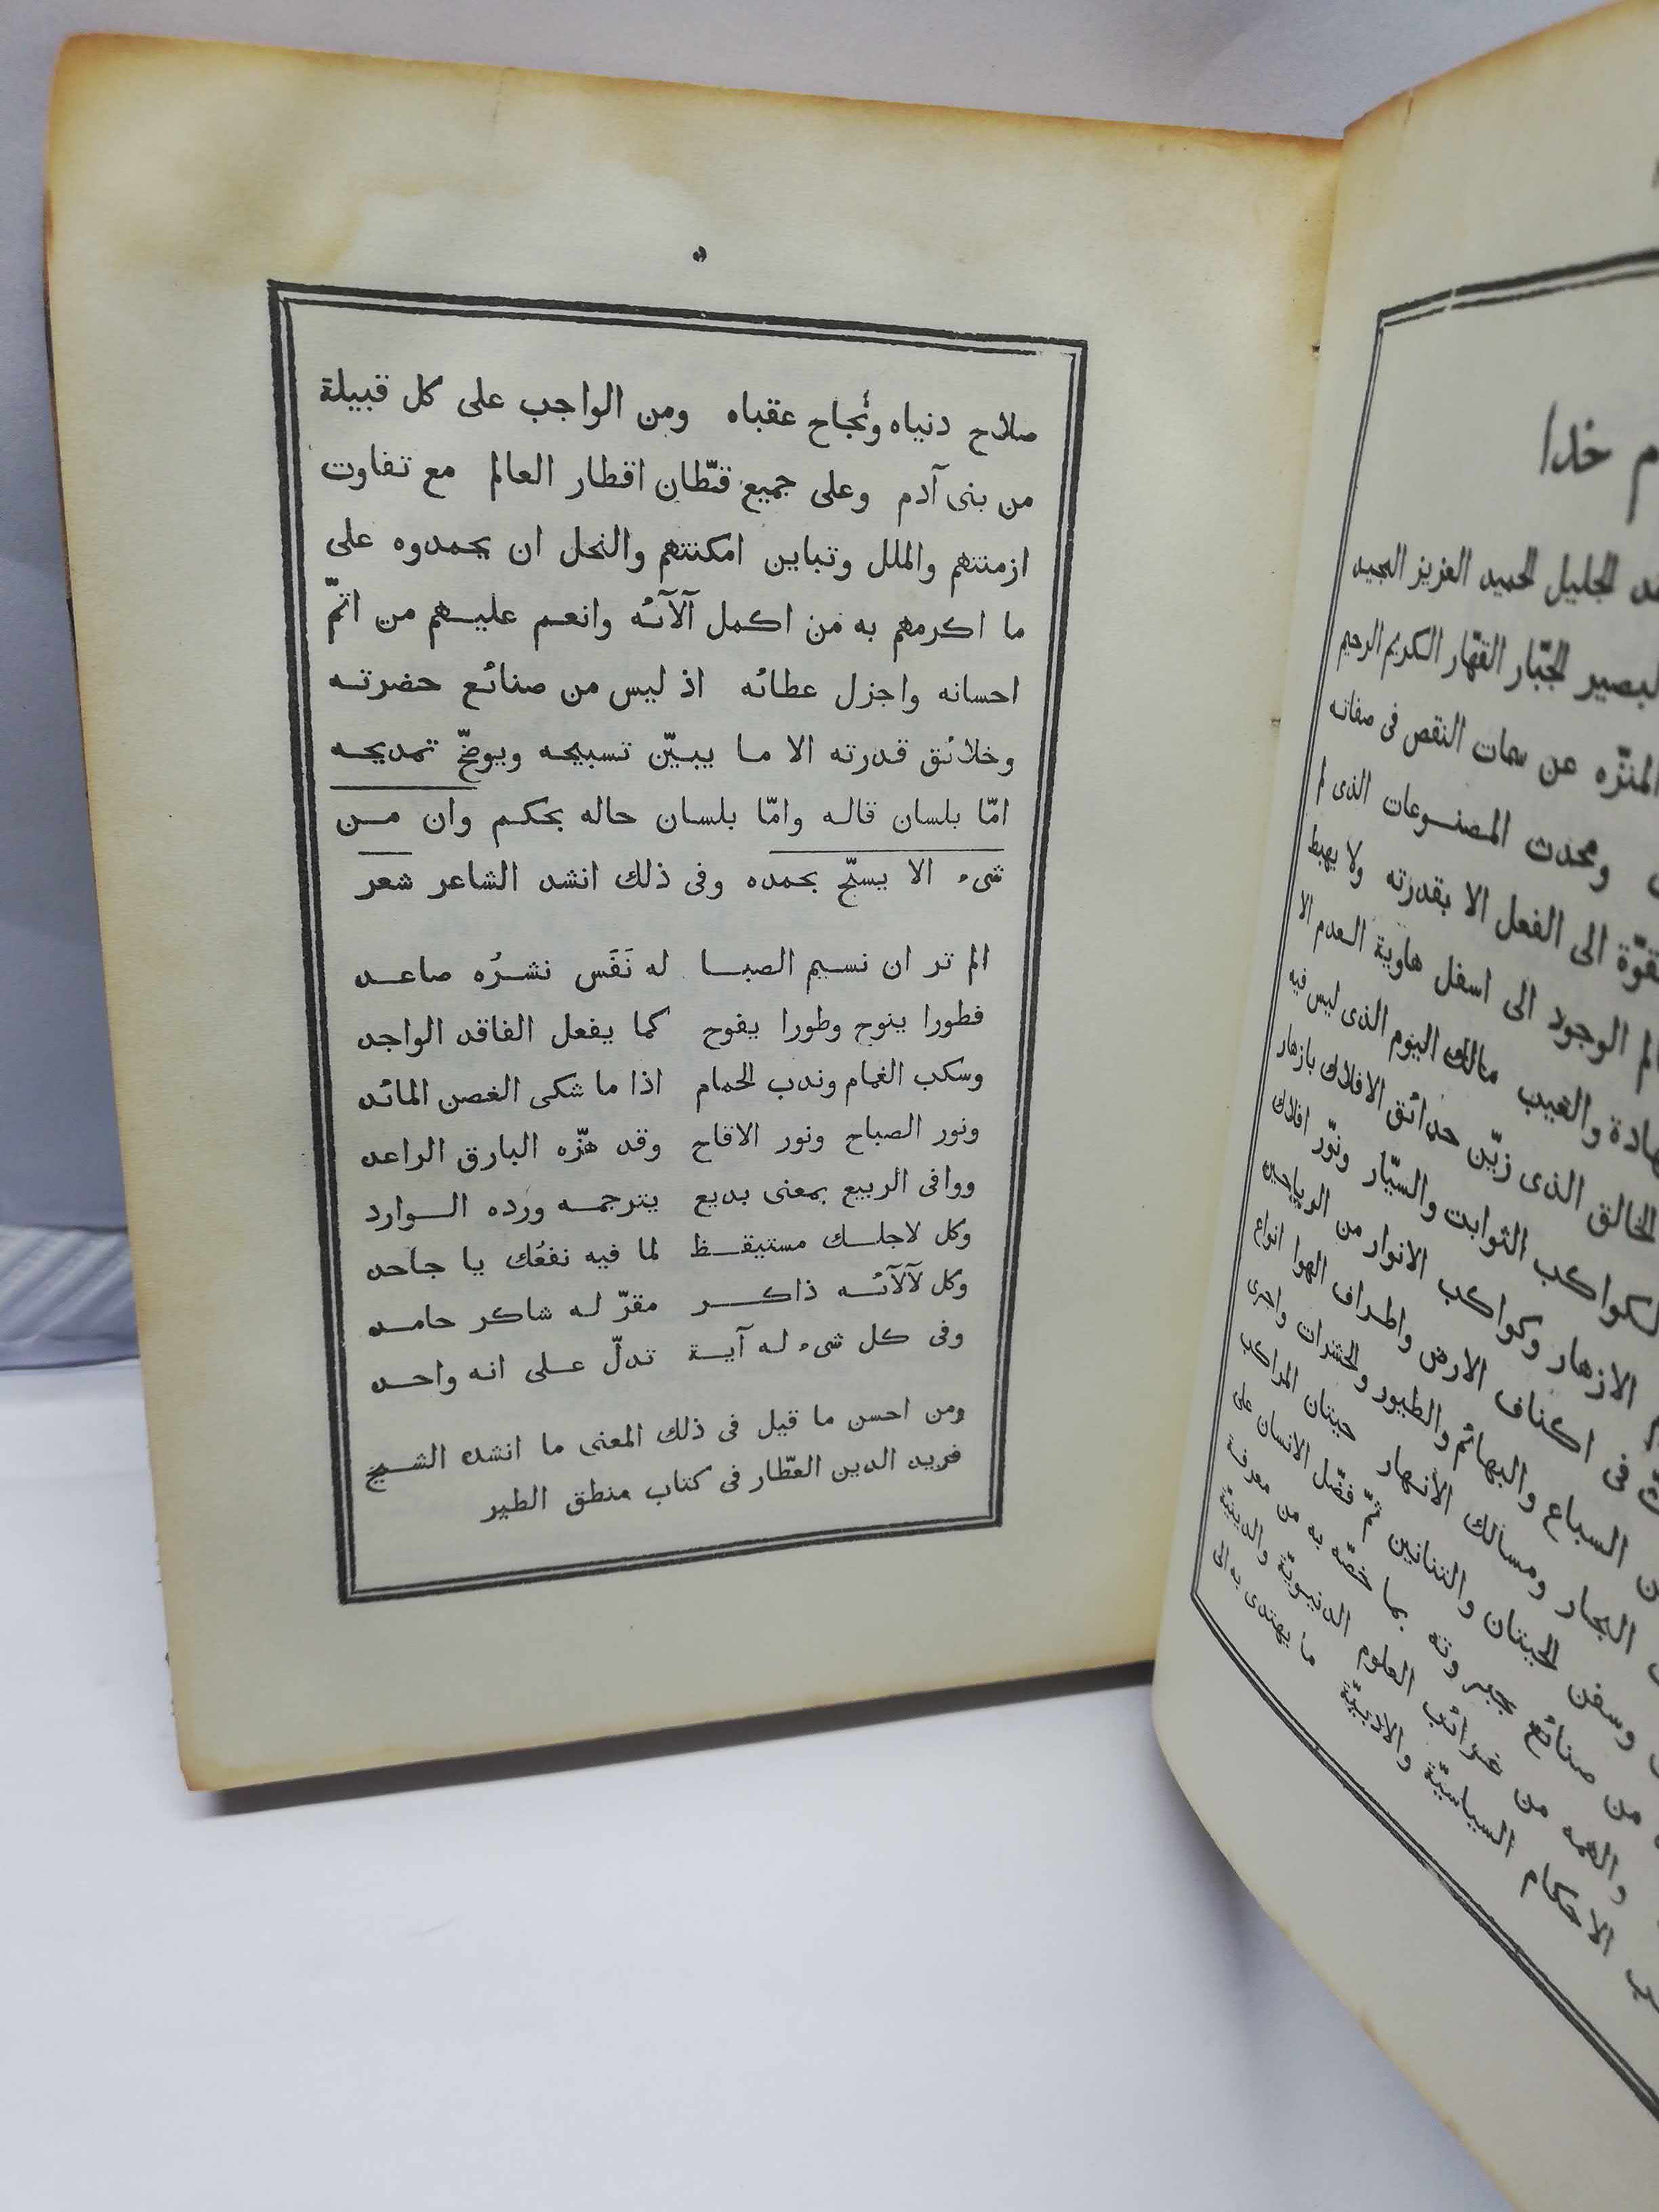 م خدا
الجليل الحميد العزيز المجيد
البصير الجبّار القهّار الكريم الرحيم
المنزّه عن سمات النقص فى صفاته
ومحدث المصنوعات الذى لم
الى الفعل الا بقدرته ولا يهبط
الوجود الى اسفل هاوية العدم الا
والغيب مالك اليوم الذى ليس فيه
الخالق الذى زيّن حدائق الافلاك بازهار
الكواكب الثوابت والسيّار ونوّر افلاك
الازهار وكواكب الانوار من الرياحين
فى اكناف الارض واطراف الهوا انواع
السباع والبهائم والطيور والحشرات واجرى
البحار ومسالك الانهار حيتان المراكب
وسفن الحيتان والتنانين ثمّ فضّل الانسان على
من صنائع جبروته بما خصّه به من معرفة
والهمه من غرائب العلوم الدنيويّة والدينيّة
الاحكام السياسيّة والادبيّة ما يهتدى به الى
٥
صلاح دنياه ونُجاح عقباه ومن الواجب على كل قبيلة
من بنى آدم وعلى جميع قطّان اقطار العالم مع تفاوت
ازمنتهم والملل وتباين امكنتهم والنحل ان يحمدوه على
ما اكرمهم به من اكمل آلآئه وانعم عليهم من اتمّ
احسانه واجزل عطائه اذ ليس من صنائع حضرته
وخلائق قدرته الا ما يبيّن تسبيحه ويوضّح تمديحه
امّا بلسان قاله وامّا بلسان حاله بحكم وان من
شىء الا يسبّح بحمده وفى ذلك انشد الشاعر شعر
الم تر ان نسيم الصبا له نَفَس نشرُه صاعد
فطورا ينوح وطورا يفوح كما يفعل الفاقد الواجد
وسكب الغمام وندب الحمام اذا ما شكى الغصن المائد
ونور الصباح ونور الاقاح وقد هزّه البارق الراعد
ووافى الربيع بمعنى بديع يترجمه ورده الوارد
وكل لاجلك مستيقظ لما فيه نفعُك يا جاحد
وكل لآلآئه ذاكر مقرّ له شاكر حامد
وفى كل شىء له آية تدلّ على انه واحد
ومن احسن ما قيل فى ذلك المعنى ما انشده الشيخ
فريد الدين العطّار فى كتاب منطق الطير